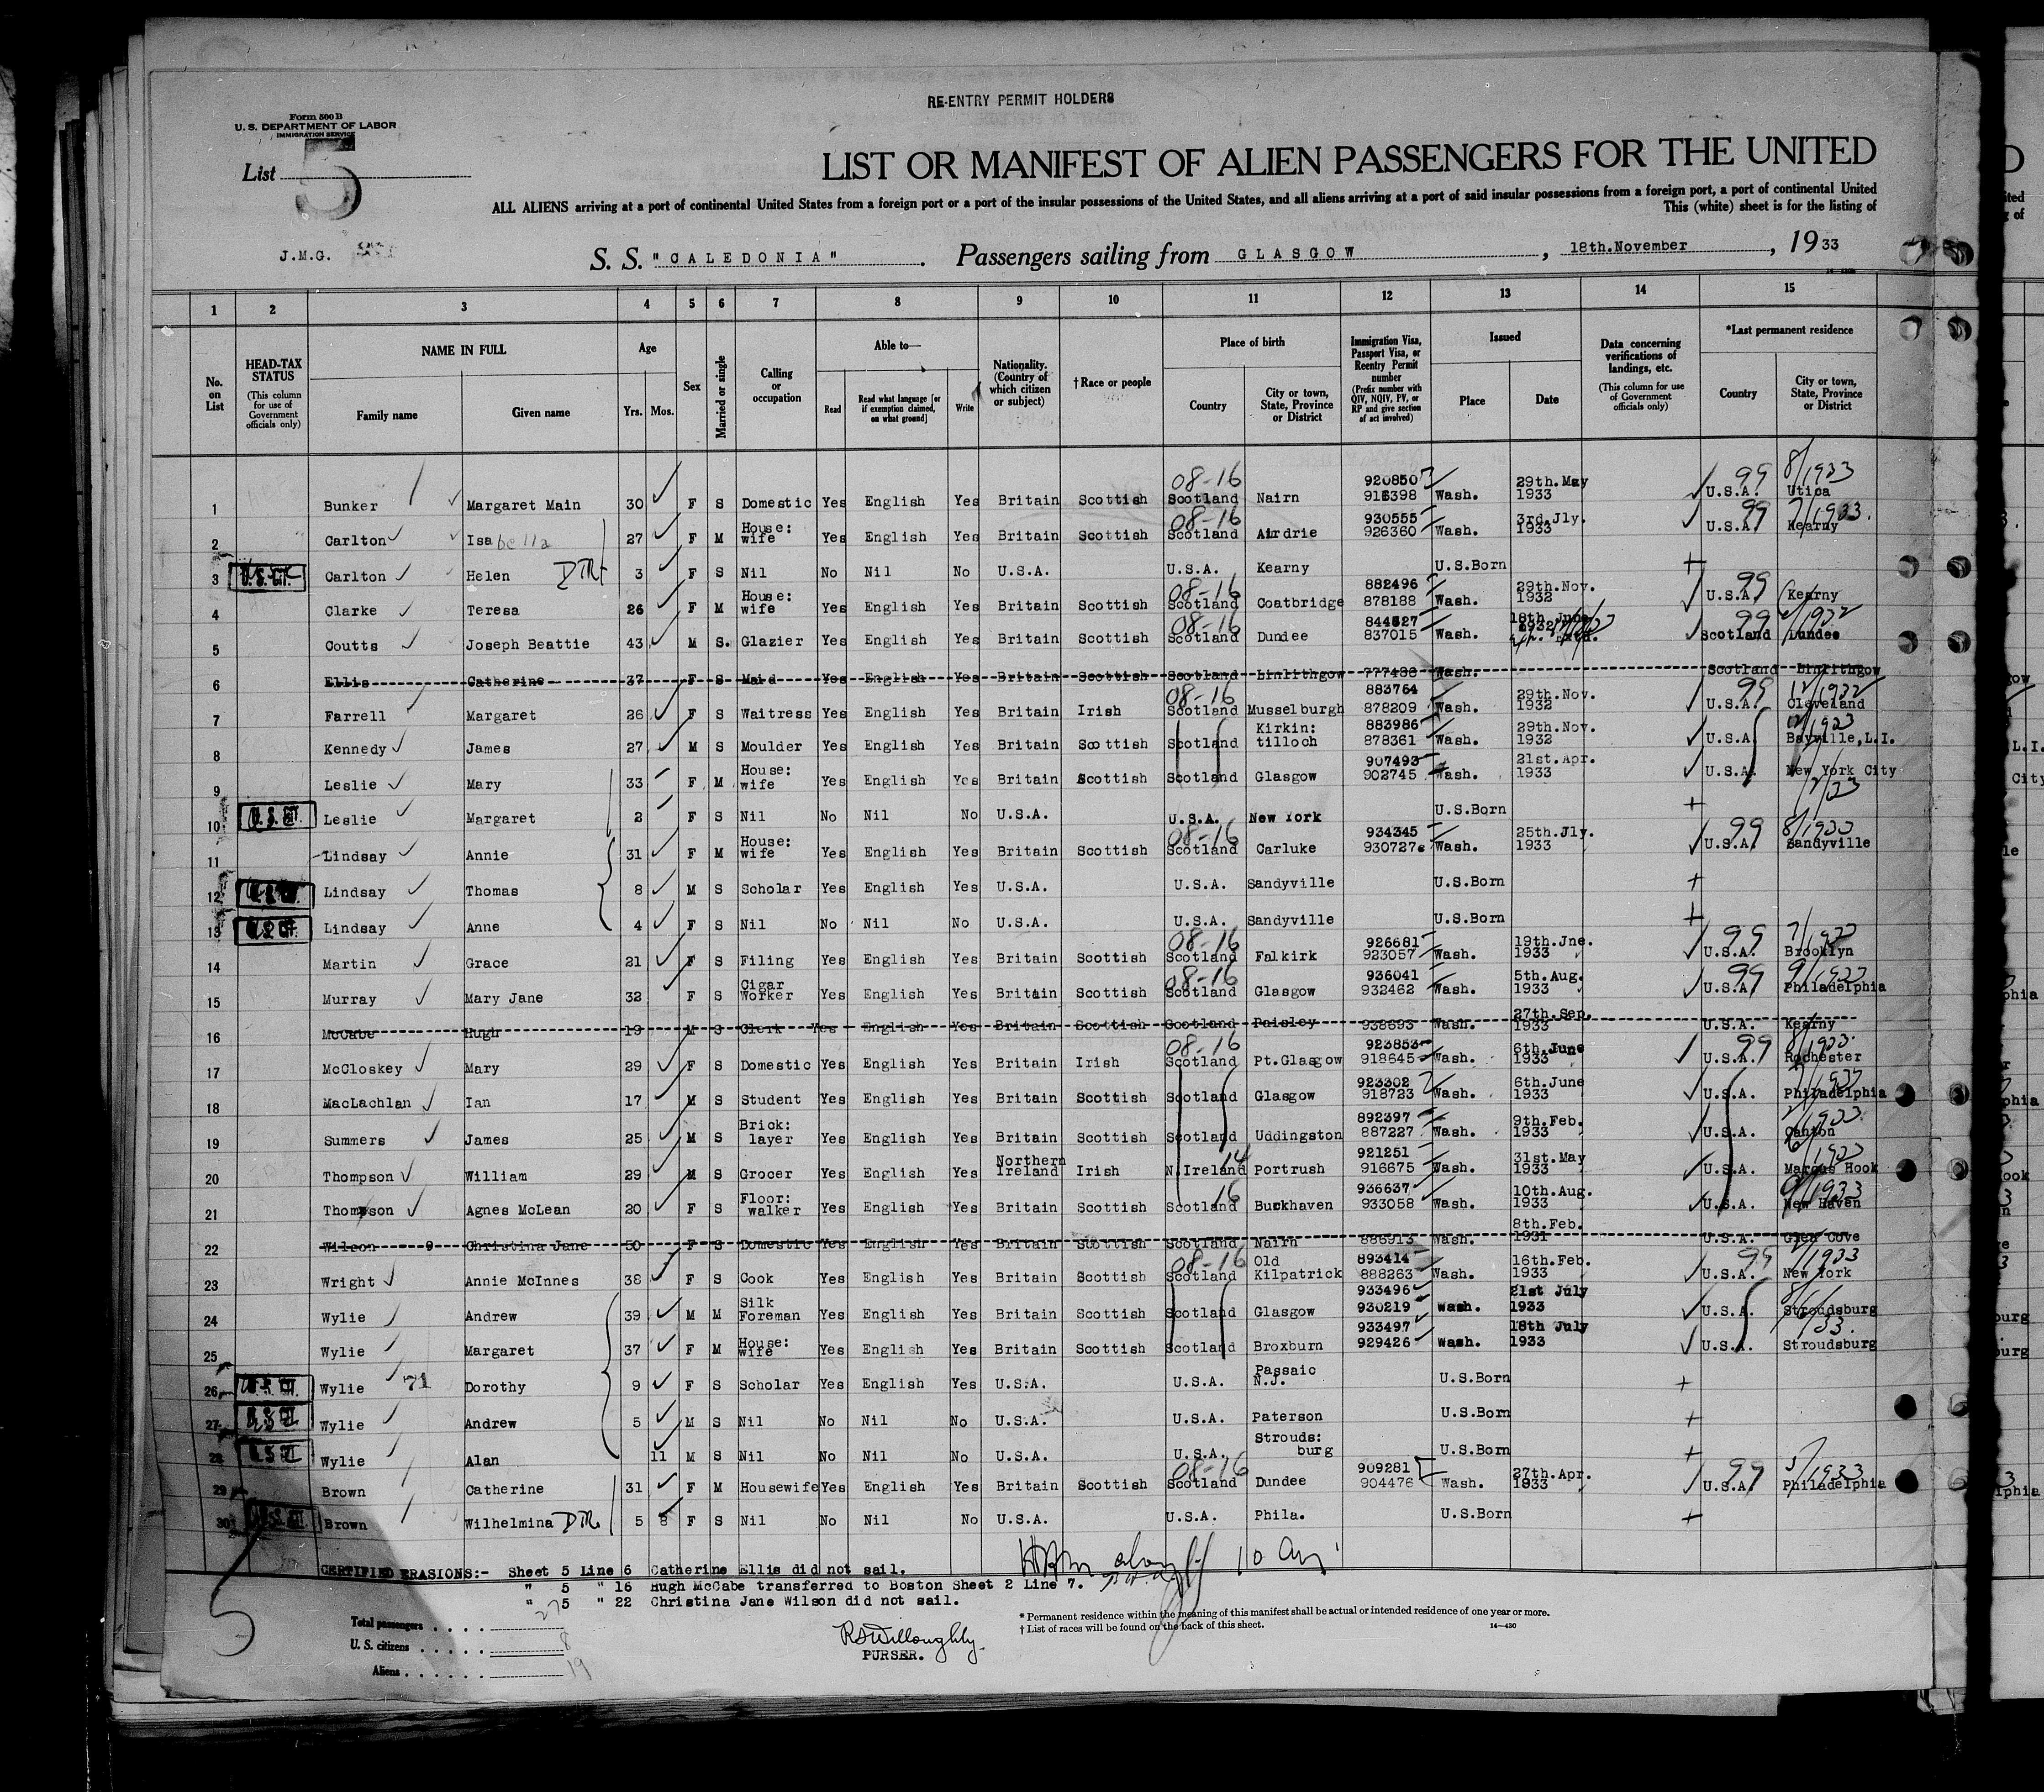 RE-ENTRY PERMIT HOLDERS
Form 500 B
U. S. DEPARTMENT OF LABOR
IMMIGRATION SERVICE
List 5
LIST OR MANIFEST OF ALIEN PASSENGERS FOR THE UNITED
ALL ALIENS arriving at a port of continental United States from a foreign port or a port of the insular possessions of the United States, and all aliens arriving at a port of said insular possessions from a foreign port, a port of continental United
This (white) sheet is for the listing of
J.M.G.
S. S. "CALEDONIA" . Passengers sailing from GLASGOW , 18th.November , 1933
1 2 3 4 5 6 7 8 9 10 11 12 13 14 15
No. on List
HEAD-TAX STATUS (This column for use of Government officials only)
NAME IN FULL Family name Given name
Age Yrs. Mos.
Sex
Married or single
Calling or occupation
Able to— Read Read what language [or if exemption claimed, on what ground] Write
Nationality. (Country of which citizen or subject)
†Race or people
Place of birth Country City or town, State, Province or District
Immigration Visa, Passport Visa, or Reentry Permit number (Prefix number with QIV, NQIV, PV, or RP and give section of act involved)
Issued Place Date
Data concerning verifications of landings, etc. (This column for use of Government officials only)
*Last permanent residence Country City or town, State, Province or District
1 Bunker Margaret Main 30 F S Domestic Yes English Yes Britain Scottish 08-16 Scotland Nairn 920850 916398 Wash. 29th.May 1933 99 U.S.A. 8/1933 Utica
2 Carlton Isabella 27 F M House: wife Yes English Yes Britain Scottish 08-16 Scotland Airdrie 930555 926360 Wash. 3rd.Jly. 1933 99 U.S.A. 7/1933. Kearny
3 U.S. CIT. Carlton Helen DTR 3 F S Nil No Nil No U.S.A. U.S.A. Kearny U.S.Born
4 Clarke Teresa 26 F M House: wife Yes English Yes Britain Scottish 08-16 Scotland Coatbridge 882496 878188 Wash. 29th.Nov. 1932 99 U.S.A. Kearny
5 Coutts Joseph Beattie 43 M S. Glazier Yes English Yes Britain Scottish 08-16 Scotland Dundee 844527 837015 Wash. 18th.June 1932 99 Scotland Dundee
6 Ellis Catherine 37 F S Maid Yes English Yes Britain Scottish Scotland Linlithgow 777488 Wash. Scotland Linlithgow
7 Farrell Margaret 26 F S Waitress Yes English Yes Britain Irish 08-16 Scotland Musselburgh 883764 878209 Wash. 29th.Nov. 1932 99 U.S.A. 12/1932 Cleveland
8 Kennedy James 27 M S Moulder Yes English Yes Britain Scottish Scotland Kirkin: tilloch 883986 878361 Wash. 29th.Nov. 1932 U.S.A. Bayville,L.I.
9 Leslie Mary 33 F M House: wife Yes English Yes Britain Scottish Scotland Glasgow 907493 902745 Wash. 21st.Apr. 1933 U.S.A. New York City
10 Leslie Margaret 2 F S Nil No Nil No U.S.A. U.S.A. New York U.S.Born
11 Lindsay Annie 31 F M House: wife Yes English Yes Britain Scottish 08-16 Scotland Carluke 934345 930727 Wash. 25th.Jly. 1933 99 U.S.A. 8/1933 Sandyville
12 Lindsay Thomas 8 M S Scholar Yes English Yes U.S.A. U.S.A. Sandyville U.S.Born
13 Lindsay Anne 4 F S Nil No Nil No U.S.A. U.S.A. Sandyville U.S.Born
14 Martin Grace 21 F S Filing Yes English Yes Britain Scottish 08-16 Scotland Falkirk 926681 923057 Wash. 19th.Jne. 1933 99 U.S.A. Brooklyn
15 Murray Mary Jane 32 F S Cigar Worker Yes English Yes Britain Scottish 08-16 Scotland Glasgow 936041 932462 Wash. 5th.Aug. 1933 99 U.S.A. 9/1933 Philadelphia
16 McCabe Hugh 19 M S Clerk Yes English Yes Britain Scottish Scotland Paisley 938693 Wash. 27th.Sep. 1933 U.S.A. Kearny
17 McCloskey Mary 29 F S Domestic Yes English Yes Britain Irish 08-16 Scotland Pt.Glasgow 923853 918645 Wash. 6th.June 1933 99 U.S.A. 8/1933. Rochester
18 MacLachlan Ian 17 M S Student Yes English Yes Britain Scottish Scotland Glasgow 923302 918723 Wash. 6th.June 1933 U.S.A. Philadelphia
19 Summers James 25 M S Brick: layer Yes English Yes Britain Scottish Scotland Uddingston 892397 887227 Wash. 9th.Feb. 1933 U.S.A. Canton
20 Thompson William 29 M S Grocer Yes English Yes Northern Ireland Irish N.Ireland 14 Portrush 921251 916675 Wash. 31st.May 1933 U.S.A. Marcus Hook
21 Thompson Agnes McLean 20 F S Floor: walker Yes English Yes Britain Scottish Scotland 16 Buckhaven 936637 933058 Wash. 10th.Aug. 1933 U.S.A. New Haven
22 Wilson Christina Jane 50 F S Domestic Yes English Yes Britain Scottish Scotland Nairn 886913 Wash. 8th.Feb. 1931 U.S.A. Glen Cove
23 Wright Annie McInnes 38 F S Cook Yes English Yes Britain Scottish 08-16 Scotland Old Kilpatrick 893414 888263 Wash. 16th.Feb. 1933 99 U.S.A. New York
24 Wylie Andrew 39 M M Silk Foreman Yes English Yes Britain Scottish Scotland Glasgow 933496 930219 Wash. 21st July 1933 U.S.A. Stroudsburg
25 Wylie Margaret 37 F M House: wife Yes English Yes Britain Scottish Scotland Broxburn 933497 929426 Wash. 18th July 1933 U.S.A. Stroudsburg
26 Wylie Dorothy 9 F S Scholar Yes English Yes U.S.A. U.S.A. Passaic N.J. U.S.Born
27 Wylie Andrew 5 M S Nil No Nil No U.S.A. U.S.A. Paterson U.S.Born
28 Wylie Alan 11 M S Nil No Nil No U.S.A. U.S.A. Strouds: burg U.S.Born
29 Brown Catherine 31 F M Housewife Yes English Yes Britain Scottish 08-16 Scotland Dundee 909281 904476 Wash. 27th.Apr. 1933 99 U.S.A. 5/1933 Philadelphia
30 Brown Wilhelmina DTR. 5 8 F S Nil No Nil No U.S.A. U.S.A. Phila. U.S.Born
CERTIFIED ERASIONS:- Sheet 5 Line 6 Catherine Ellis did not sail.
" 5 " 16 Hugh McCabe transferred to Boston Sheet 2 Line 7.
" 5 " 22 Christina Jane Wilson did not sail.
5
Total passengers 27
U. S. citizens 8
Aliens 19
RS Willoughby.
PURSER.
* Permanent residence within the meaning of this manifest shall be actual or intended residence of one year or more.
† List of races will be found on the back of this sheet.
14—430